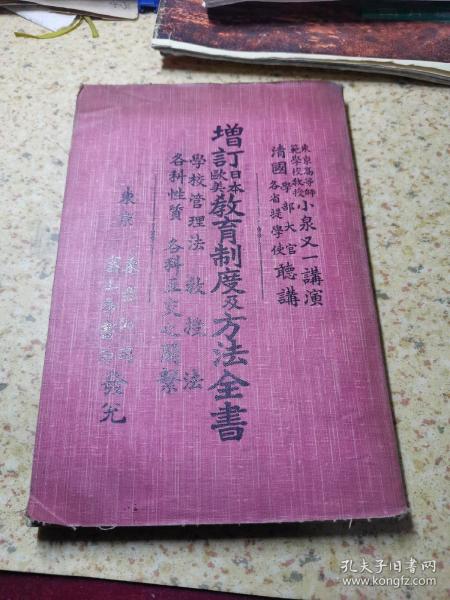 東京高等師範學校教授 小泉又一講演
清國 學部大官 各省提學使 聽講
增訂日本歐美教育制度及方法全書
學校管理法 教授法
各科性質 各科互交之關繫
東京
發兌
孔夫子旧书网
www.kongfz.com